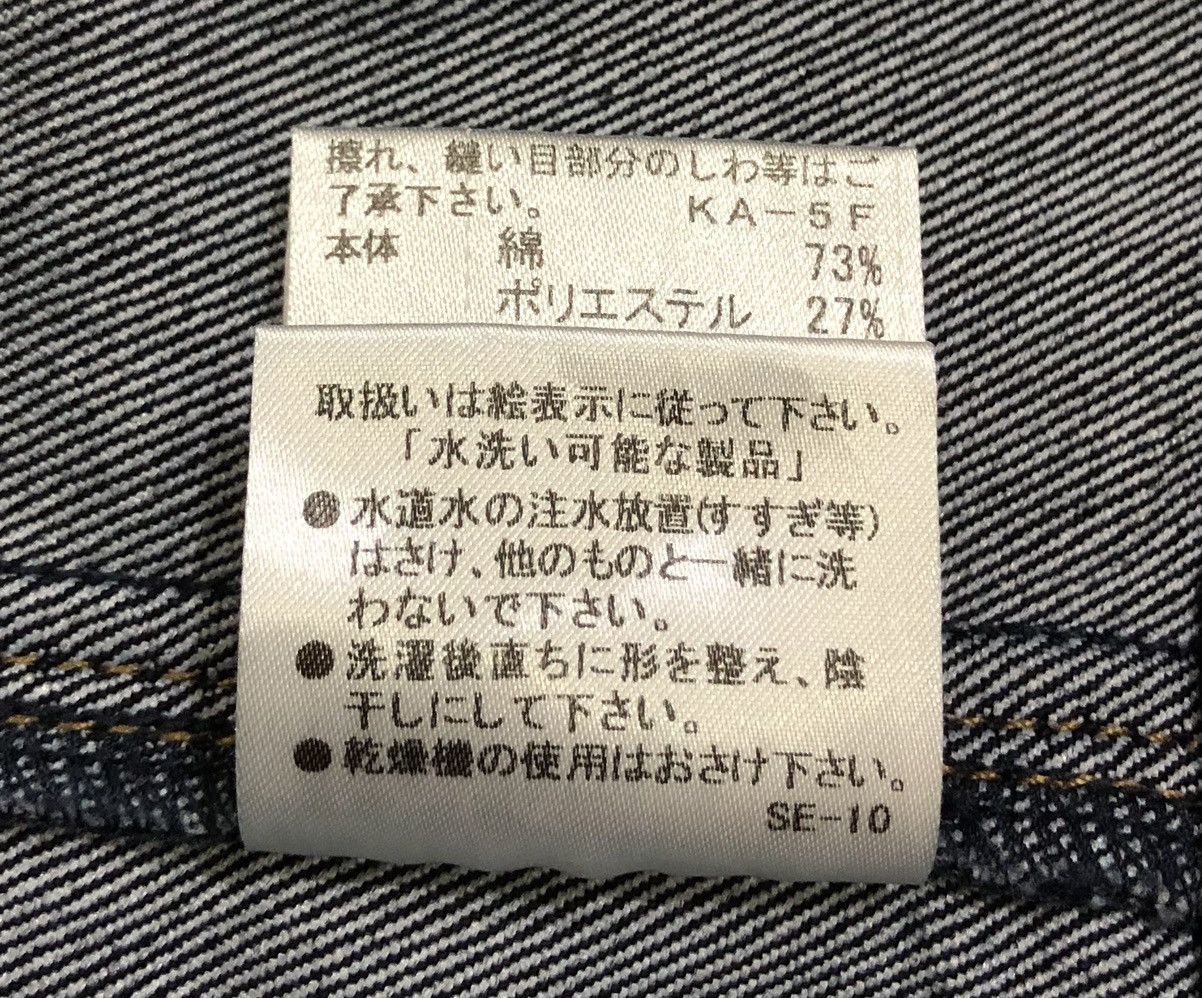 擦れ、縫い目部分のしわ等はご
了承下さい。 KA-5F
本体 綿 73%
ポリエステル 27%
取扱いは絵表示に従って下さい。
「水洗い可能な製品」
●水道水の注水放置(すすぎ等)
はさけ、他のものと一緒に洗
わないで下さい。
●洗濯後直ちに形を整え、陰
干しにして下さい。
●乾燥機の使用はおさけ下さい。
SE-10